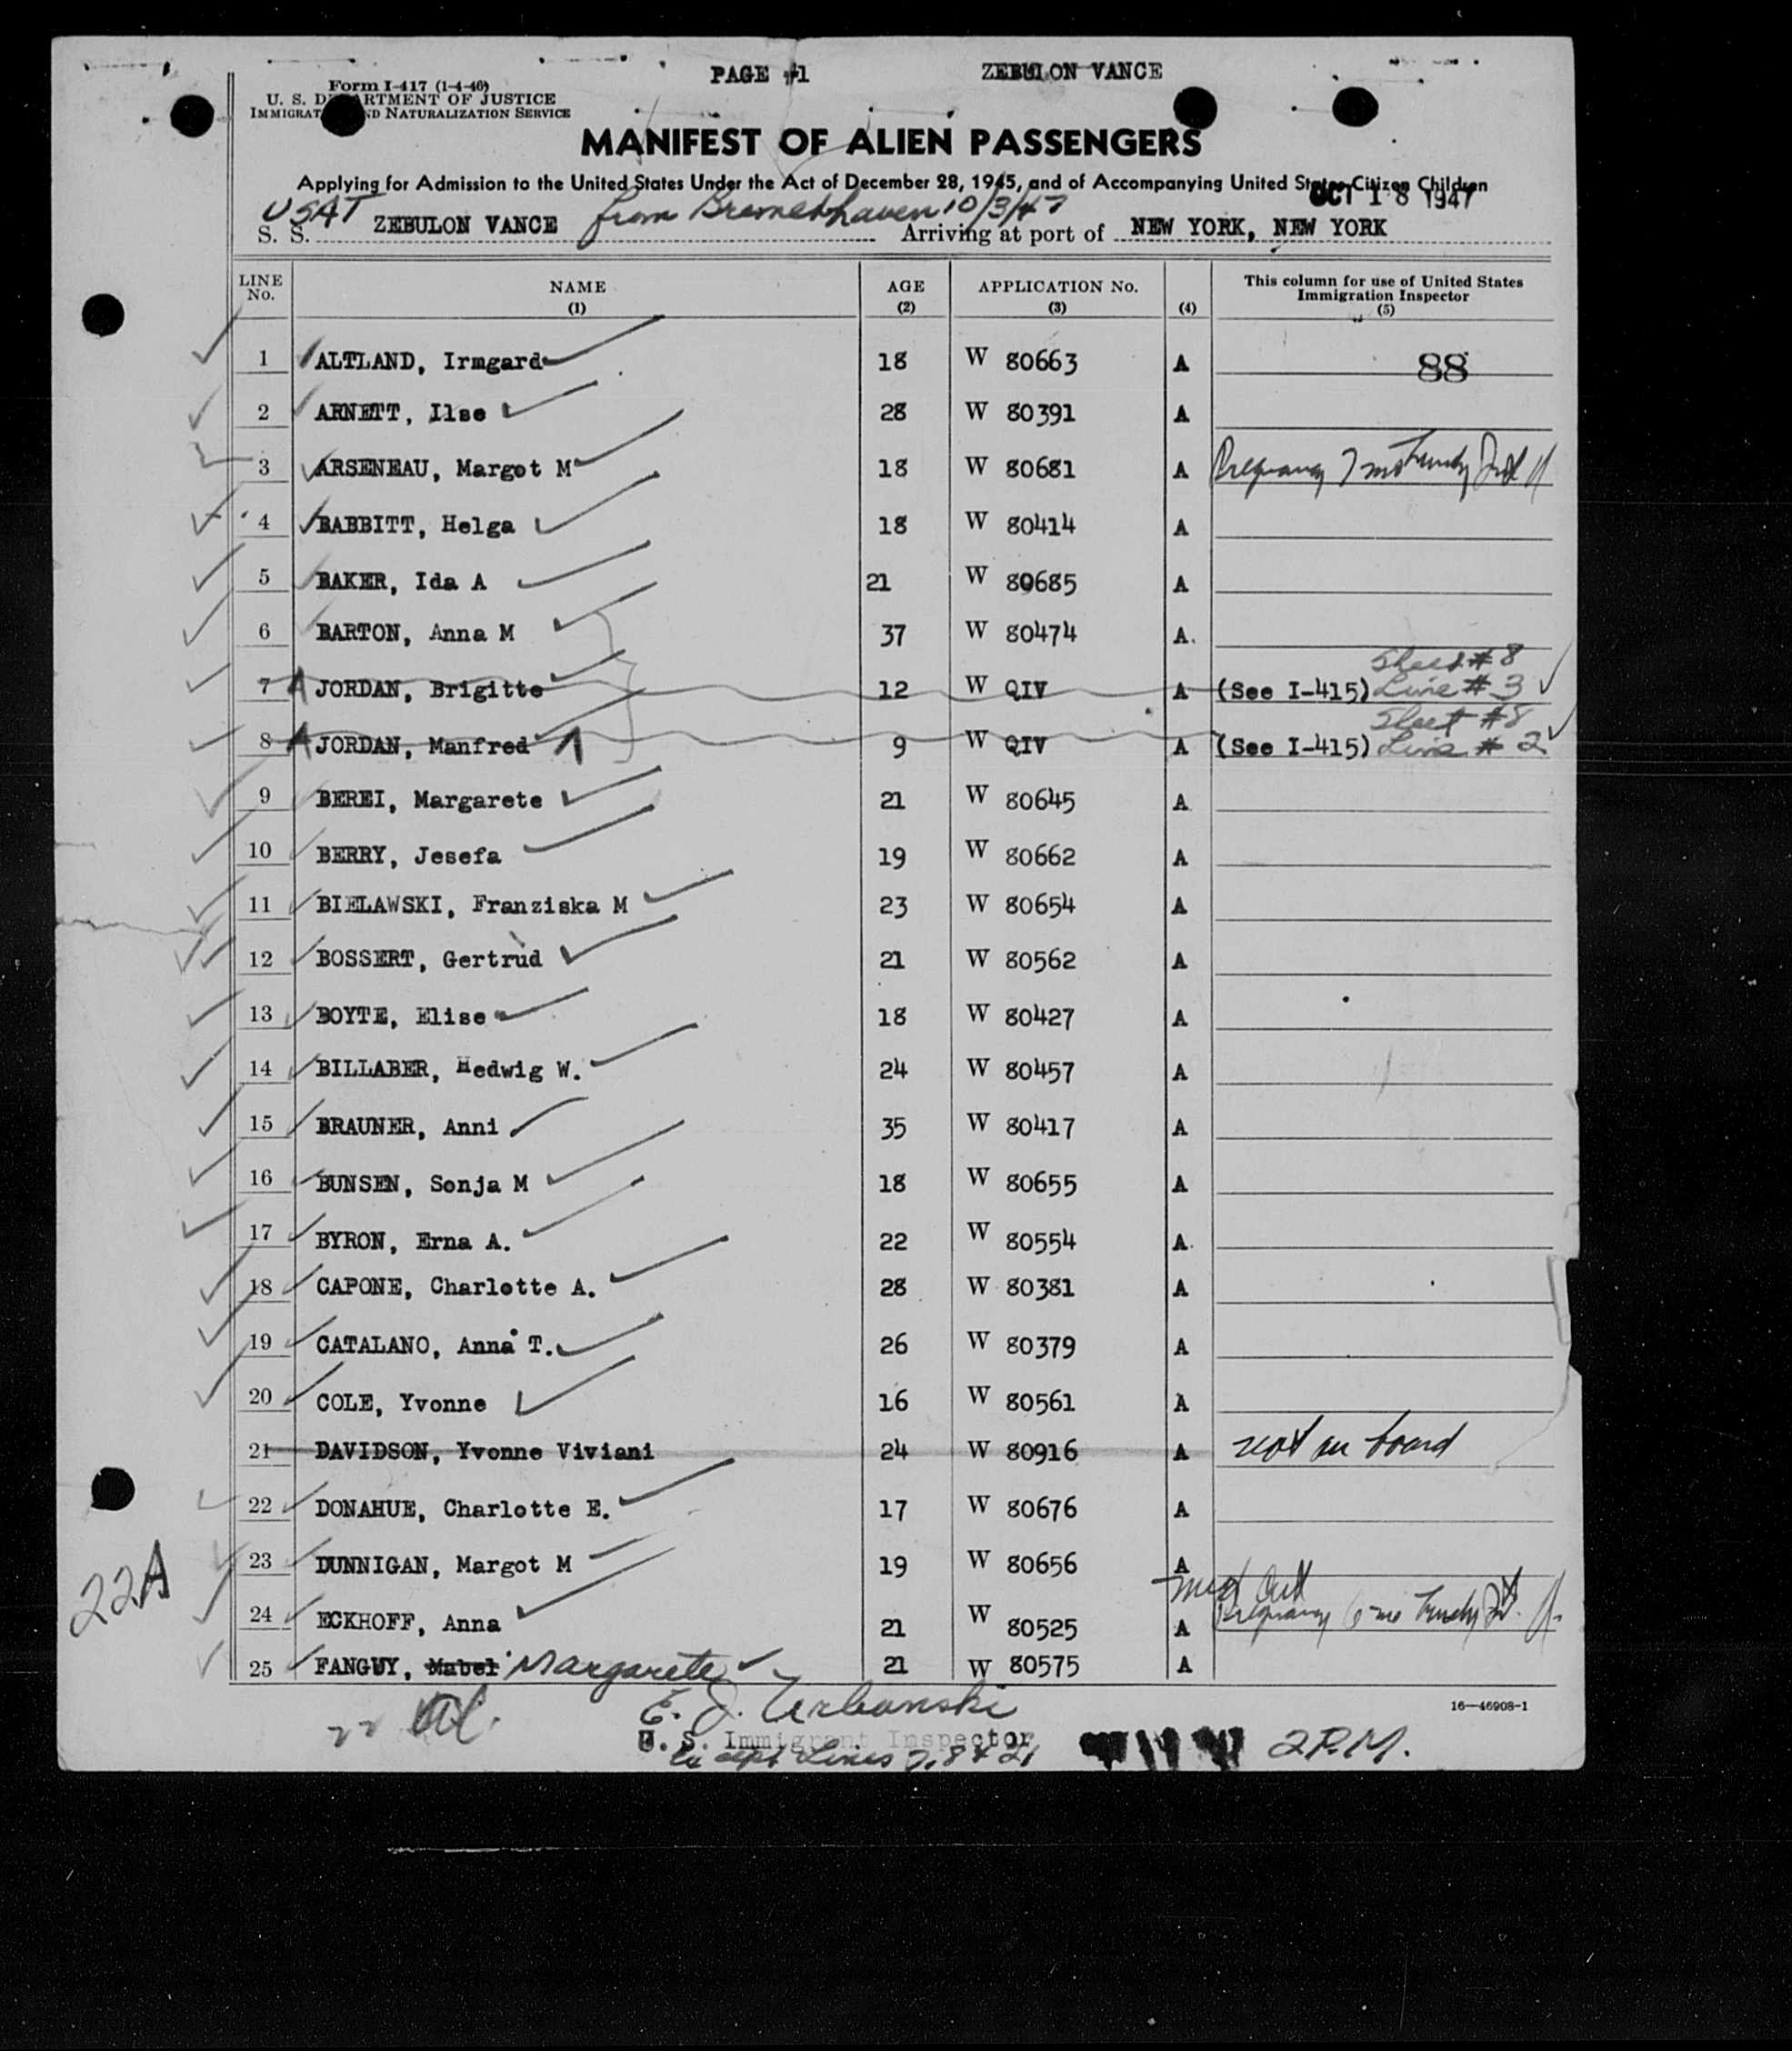 PAGE #1 ZEBULON VANCE
Form I-417 (1-4-46)
U. S. DEPARTMENT OF JUSTICE
IMMIGRATION AND NATURALIZATION SERVICE
MANIFEST OF ALIEN PASSENGERS
Applying for Admission to the United States Under the Act of December 28, 1945, and of Accompanying United States Citizen Children
OCT 18 1947
USAT
S. S. ZEBULON VANCE from Bremerhaven 10/3/47 Arriving at port of NEW YORK, NEW YORK
LINE No. NAME (1) AGE (2) APPLICATION No. (3) (4) This column for use of United States Immigration Inspector (5)
1 ALTLAND, Irmgard 18 W 80663 A 88
2 ARNETT, Ilse 28 W 80391 A
3 ARSENEAU, Margot M 18 W 80681 A Pregnancy 7 mo
4 BABBITT, Helga 18 W 80414 A
5 BAKER, Ida A 21 W 80685 A
6 BARTON, Anna M 37 W 80474 A.
7 A JORDAN, Brigitte 12 W QIV A (See I-415) Sheet #8 Line #3
8 A JORDAN, Manfred 9 W QIV A (See I-415) Sheet #8 Line #2
9 BEREI, Margarete 21 W 80645 A
10 BERRY, Josefa 19 W 80662 A
11 BIELAWSKI, Franziska M 23 W 80654 A
12 BOSSERT, Gertrud 21 W 80562 A
13 BOYTE, Elise 18 W 80427 A
14 BILLABER, Hedwig W. 24 W 80457 A
15 BRAUNER, Anni 35 W 80417 A
16 BUNSEN, Sonja M 18 W 80655 A
17 BYRON, Erna A. 22 W 80554 A.
18 CAPONE, Charlotte A. 28 W 80381 A
19 CATALANO, Anna T. 26 W 80379 A
20 COLE, Yvonne 16 W 80561 A
21 DAVIDSON, Yvonne Viviani 24 W 80916 A not on board
22 DONAHUE, Charlotte E. 17 W 80676 A
23 DUNNIGAN, Margot M 19 W 80656 A
22A
24 ECKHOFF, Anna 21 W 80525 A Med Cert Pregnancy 6 mo
25 FANGUY, Mabel Margarete 21 W 80575 A
16—46908-1
E. J. Urbanski
U. S. Immigrant Inspector
except Lines 7, 8 & 21
2 P.M.